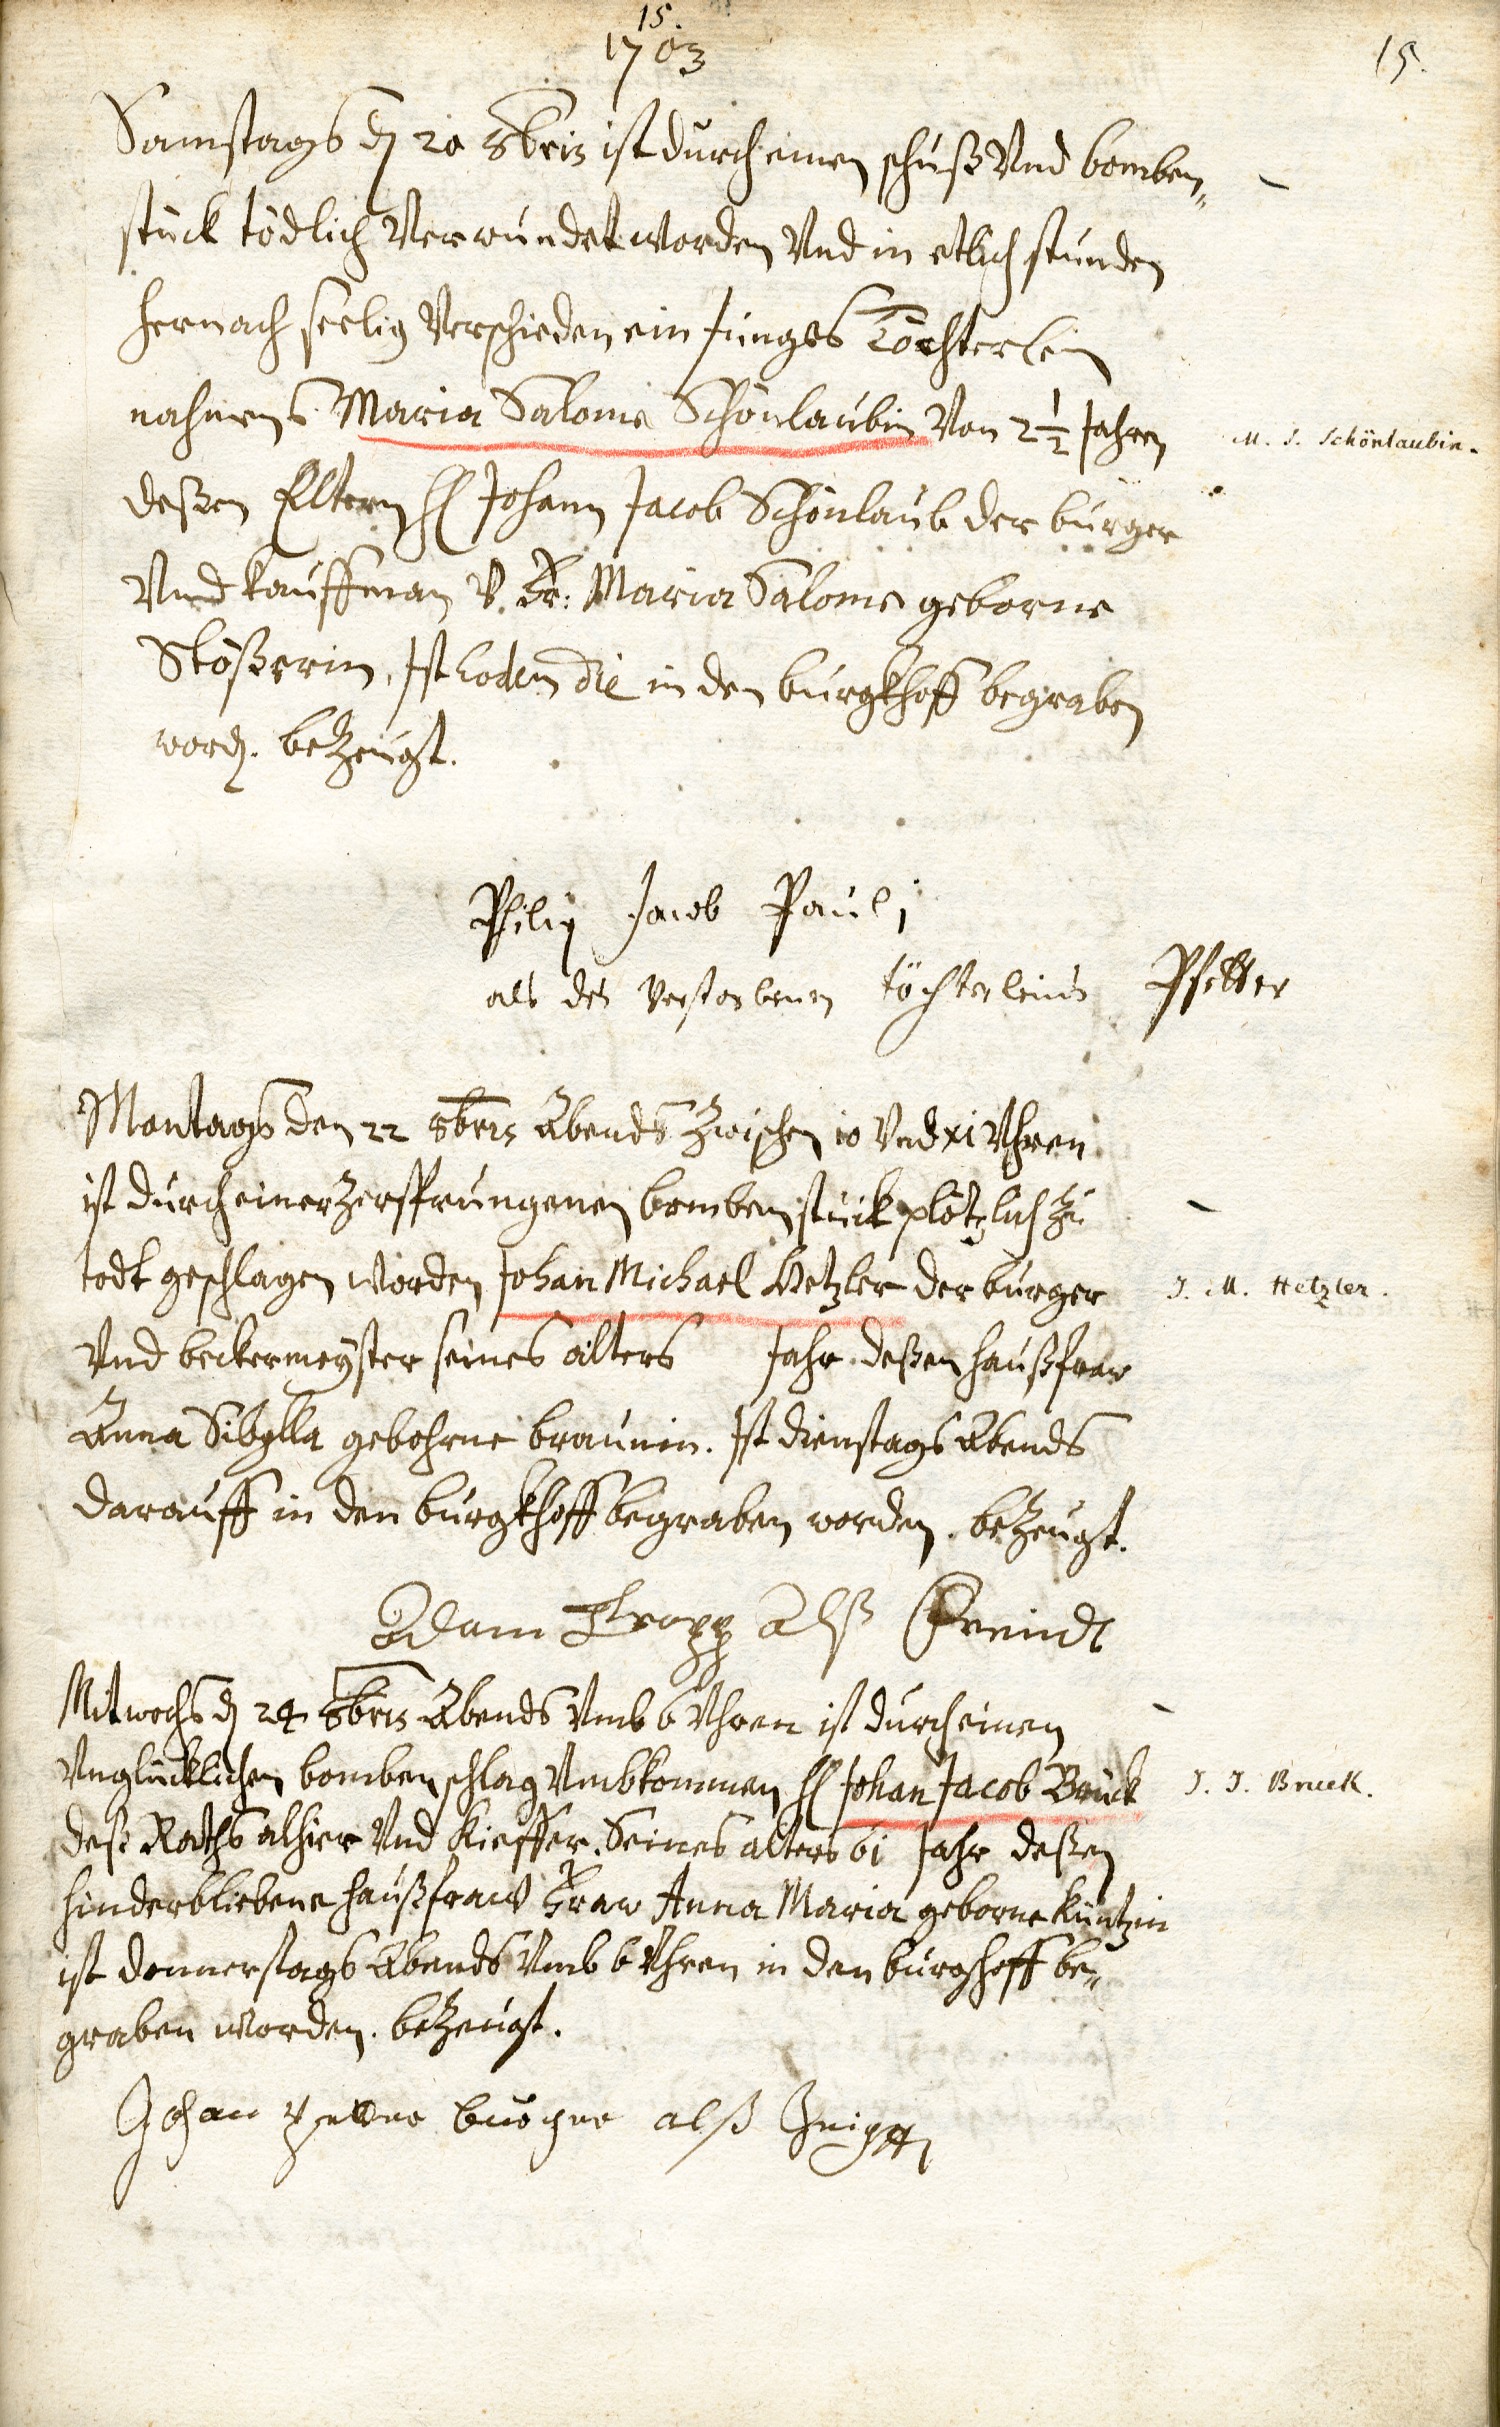 15.
1703
15.
Samstags dn 20 8bris ist durch einen schuß Vnd bomben„
stück tödlich Verwundet worden Vnd in etlich stunden
hernach seelig Verschieden ein Junges Töchterlein
nahmens Maria Salome Schönlaubin Von 2½ Jahren
M. S. Schönlaubin.
deßen Eltern H Johann Jacob Schönlaub der burger
Vnd kauffman V. Fr: Maria Salome geborne
Stößerin, Ist eodem die in den burgkhoff begraben
word. beZeugt.
Philip Jacob Pauli
als des Verstorbenen töchterleins Pfetter
Montags den 22 8bris Abends Zwischen 10 Vnd xi Vhren
ist durch einer Zersprungenen bomben stück plötzlich Zu
todt geschlagen worden Johan Michael Hetzler der burger
J. M. Hetzler.
Vnd beckermeyster seines alters Jahr deßen haußfraw
Anna Sibylla gebohrne braunin. Ist dienstags Abends
darauff in den burgkhoff begraben worden. beZeugt.
Adam Alß Freindt
Mitwochs dn 24 8bris Abends Vmb 6 Vhren ist durch einen
Vnglücklichen bomben schlag Vmbkommen H Johan Jacob Bruck
J. J. Bruck.
deß Raths alhier Vnd Kieffer. Seines alters 61 Jahr deßen
hinderbliebene haußfraw Fraw Anna Maria geborne Küntzin
ist donnerstags Abends Vmb 6 Vhren in den burghoff be„
graben worden. beZeugt.
Johan alß